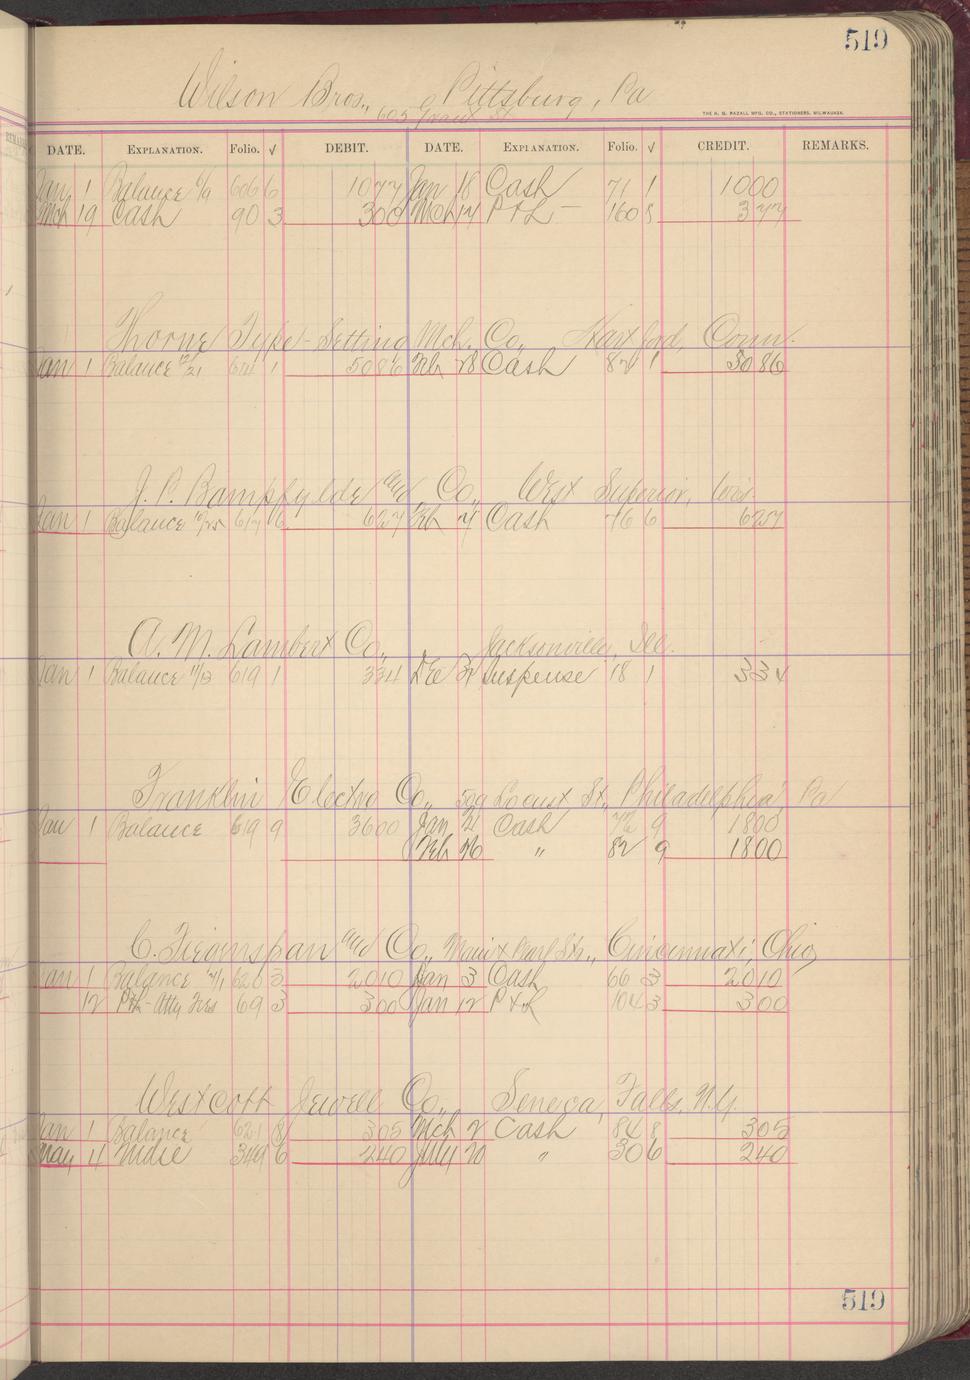 519
Wilson Bros., Pittsburg, Pa
605 Grant St
THE H. G. RAZALL MFG. CO., STATIONERS, MILWAUKEE.
DATE. EXPLANATION. Folio. √ DEBIT. DATE. EXPLANATION. Folio. √ CREDIT. REMARKS.
Jan 1 Balance 606 6 1077 Jan 18 Cash 71 1 1000
Mch 19 Cash 90 3 300 Mch 17 P & L — 160 377
Thorne Type-Setting Mch. Co., Hartford, Conn.
Jan 1 Balance 1 5086 Feb 28 Cash 82 1 5086
J. P. Bampfylde and Co., West Superior, Wis.
Jan 1 Balance 617 6 627 Feb 7 Cash 76 6 627
A. M. Lambert Co., Jacksonville, Ill.
Jan 1 Balance 11/13 619 1 334 Dec 31 Suspense 18 1 334
Franklin Electro Co., 509 Locust St., Philadelphia, Pa
Jan 1 Balance 619 9 3600 Jan 21 Cash 72 9 1800
Feb 26 " 82 9 1800
C. Tiegnspan and Co., Main & Pearl Sts., Cincinnati, Ohio
Jan 1 Balance 620 3 2010 Jan 3 Cash 66 3 2010
12 P&L - Atty Fees 69 3 300 Jan 12 P & L 104 3 300
Westcott Jewell Co., Seneca Falls, N.Y.
Jan 1 Balance 621 8 305 Mch 2 Cash 84 8 305
May 4 Mdse 349 6 240 July 20 " 30 6 240
519